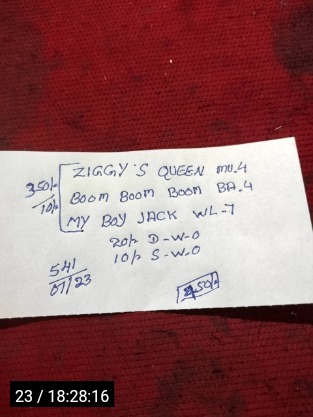 ZIGGY'S QUEEN MU.4
350/-
BOOM BOOM BOOM BA.4
10/-
MY BOY JACK WL-7
20/- D-W-O
10/- S-W-O
541
07/23
450/-
23 / 18:28:16